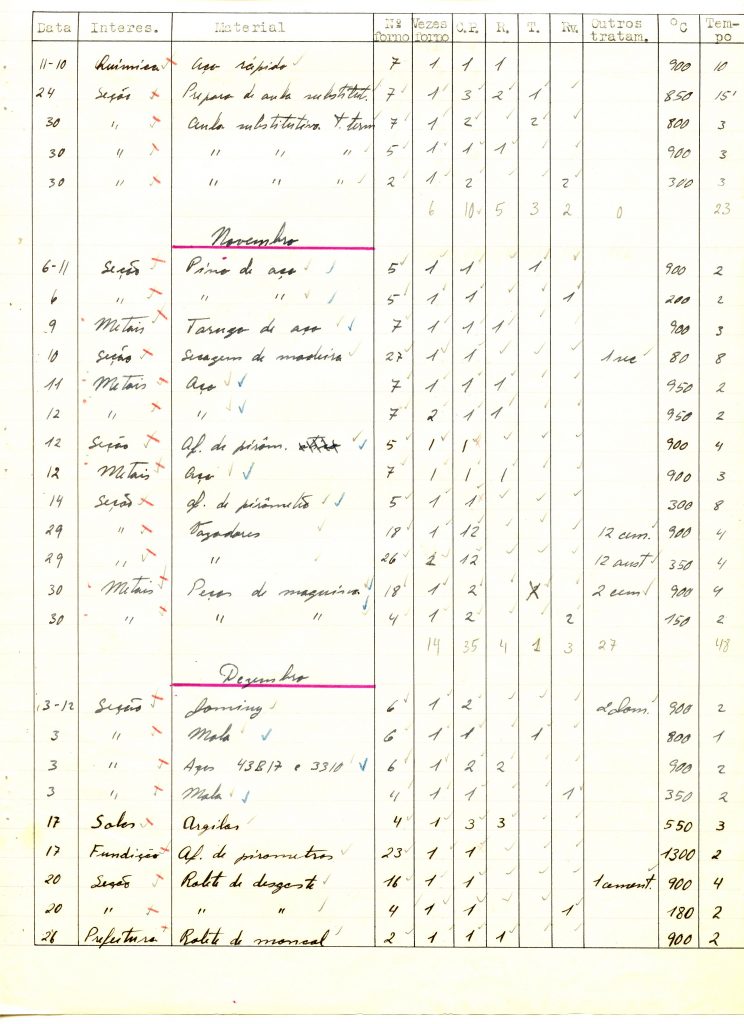 Data Interes. Material Nº forno Vezes forno C.P. R. T. Rv. Outros tratam. ºC Tempo
11-10 Química Aço rápido 7 1 1 1 900 10
24 Seção Preparo de aula substitut. 7 1 3 2 1 850 15'
30 " Aula substitutiva T. term 7 1 2 2 800 3
30 " " " " 5 1 1 1 900 3
30 " " " " 2 1 2 2 300 3
6 10 5 3 2 0 23
Novembro
6-11 Seção Pino de aço 5 1 1 1 900 2
6 " " " 5 1 1 1 200 2
9 Metais Tarugo de aço 7 1 1 1 900 3
10 Seção Secagem de madeira 27 1 1 1 sec 80 8
11 Metais Aço 7 1 1 1 950 2
12 " " 7 2 1 1 950 2
12 Seção Af. de pirôm. 5 1 1 900 4
12 Metais Aço 7 1 1 1 900 3
14 Seção Af. de pirômetro 5 1 1 300 8
29 " Vazadores 18 1 12 12 cem. 900 4
29 " " 26 1 12 12 aust 350 4
30 Metais Peças de maquina 18 1 2 2 cem 900 4
30 " " " 4 1 2 2 150 2
14 35 4 1 3 27 48
Dezembro
3-12 Seção Jominy 6 1 2 2 Jom. 900 2
3 " Mola 6 1 1 1 800 1
3 " Aços 43B17 e 3310 6 1 2 2 900 2
3 " Mola 4 1 1 1 350 2
17 Solos Argilas 4 1 3 3 550 3
17 Fundição Af. de pirometros 23 1 1 1300 2
20 Seção Rolete de desgaste 16 1 1 1 cement. 900 4
20 " " " 4 1 1 1 180 2
26 Prefeitura Rolete de mancal 2 1 1 1 900 2